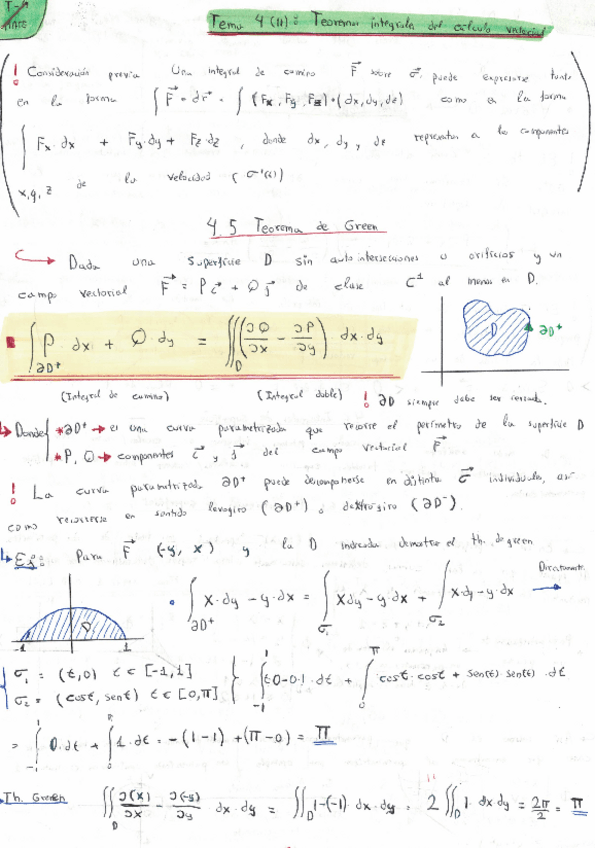 T-4
MATE
Tema 4 (II): Teoremas integrales del cálculo vectorial
! Consideración previa Una integral de camino F⃗ sobre σ⃗, puede expresarse tanto
en la forma ∫ F⃗ · dr⃗ = ∫ (Fx, Fy, Fz) · (dx, dy, dz) como a la forma
∫ Fx · dx + Fy · dy + Fz dz, donde dx, dy y dz representan a las componentes
x, y, z de la velocidad (σ'(t))
4.5 Teorema de Green
Dada una superficie D sin autointersecciones u orificios y un
campo vectorial F⃗ = P i⃗ + Q j⃗ de clase C¹ al menos en D.
∫∂D⁺ P · dx + Q · dy = ∬D (∂Q/∂x − ∂P/∂y) dx · dy
D ∂D⁺
(Integral de camino) (Integral doble) ! ∂D siempre debe ser cerrada.
Donde * ∂D⁺ → es una curva parametrizada que recorre el perímetro de la superficie D
* P, Q → componentes i⃗ y j⃗ del campo vectorial F⃗
! La curva parametrizada ∂D⁺ puede descomponerse en distintas σ⃗ individuales, así
como recorrerse en sentido levogiro (∂D⁺) ó dextrogiro (∂D⁻).
Ej: Para F⃗ (-y, x) y la D indicada demostrar el th. de green
Directamente
D -1 1
• ∫∂D⁺ x · dy − y · dx = ∫σ₁ x dy − y · dx + ∫σ₂ x · dy − y · dx
σ₁ = (t, 0) t ∈ [-1, 1]
σ₂ = (cos t, sen t) t ∈ [0, π]
∫₋₁¹ t · 0 − 0 · 1 · dt + ∫₀^π cos t · cos t + sen(t) · sen(t) · dt
= ∫₋₁¹ 0 · dt + ∫₀^π 1 · dt = −(1−1) + (π−0) = π
Th. Green ∬D ∂(x)/∂x − ∂(-y)/∂y dx · dy = ∬D 1−(−1) dx · dy = 2 ∬D 1 · dx dy = 2π/2 = π